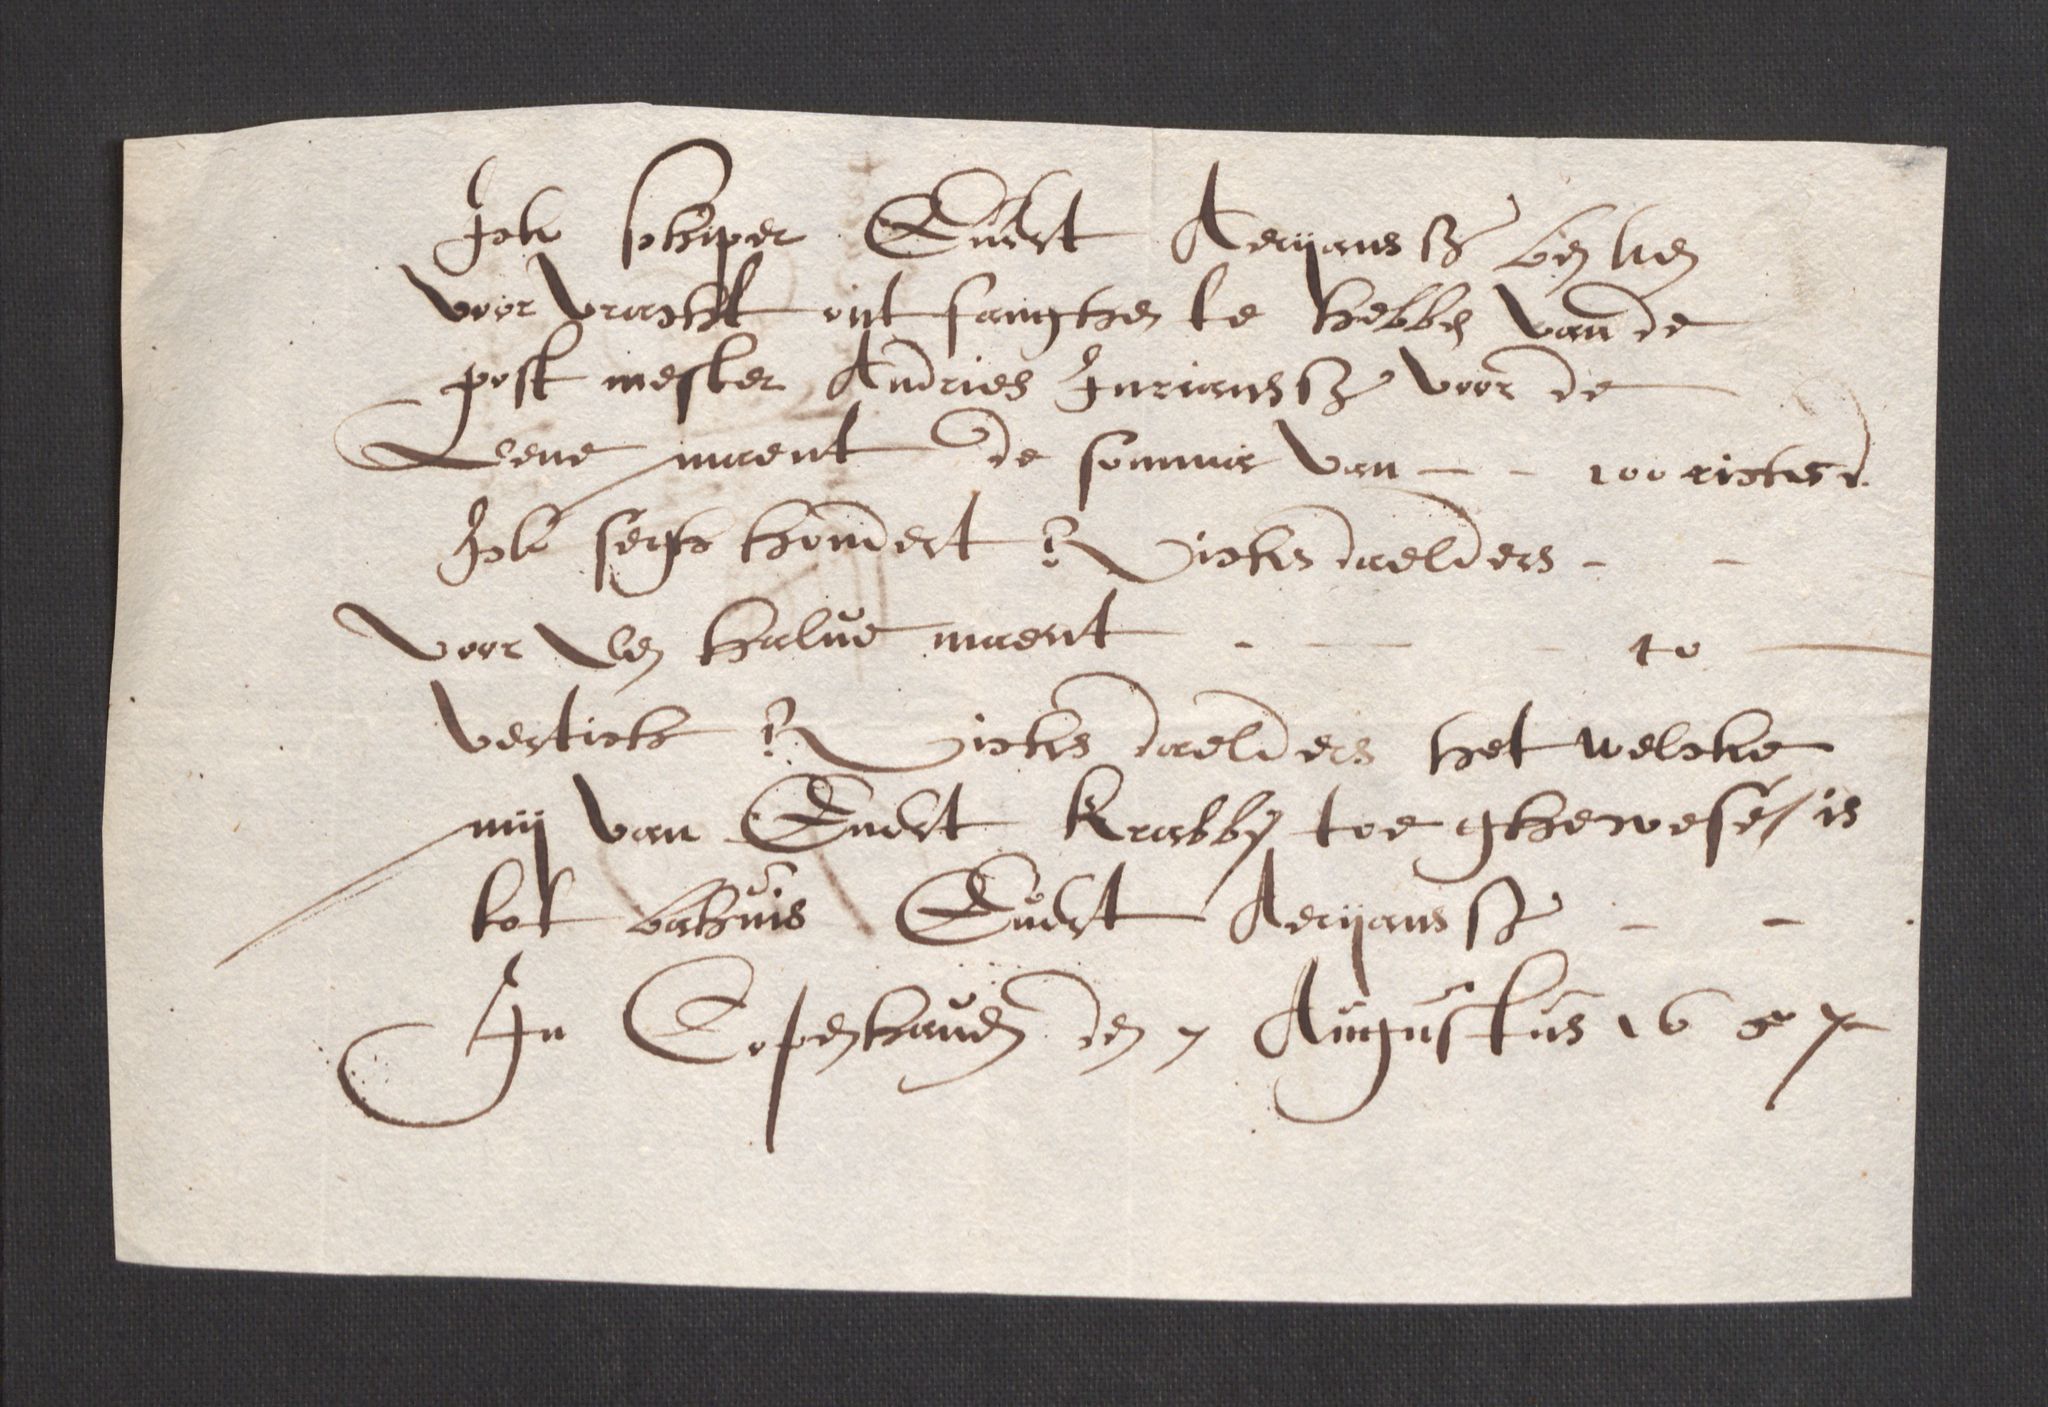 Ick schiper Evert Aerijanssz beken
voor vracht ontfanghen te hebben van de
post mester Andries Jurianssz voor de
Eene maent de somma van - - 100 rixtesd.
Ick segh hondert Rickes daelders - -
voor een halve maent - - - 40
vertich Rickes daelders het welcke
mij van Evert Krabby toe ghewesen is
tot bathuis Evert Aerijanssz - -
In Copenhaven den 7 Augustus 1657